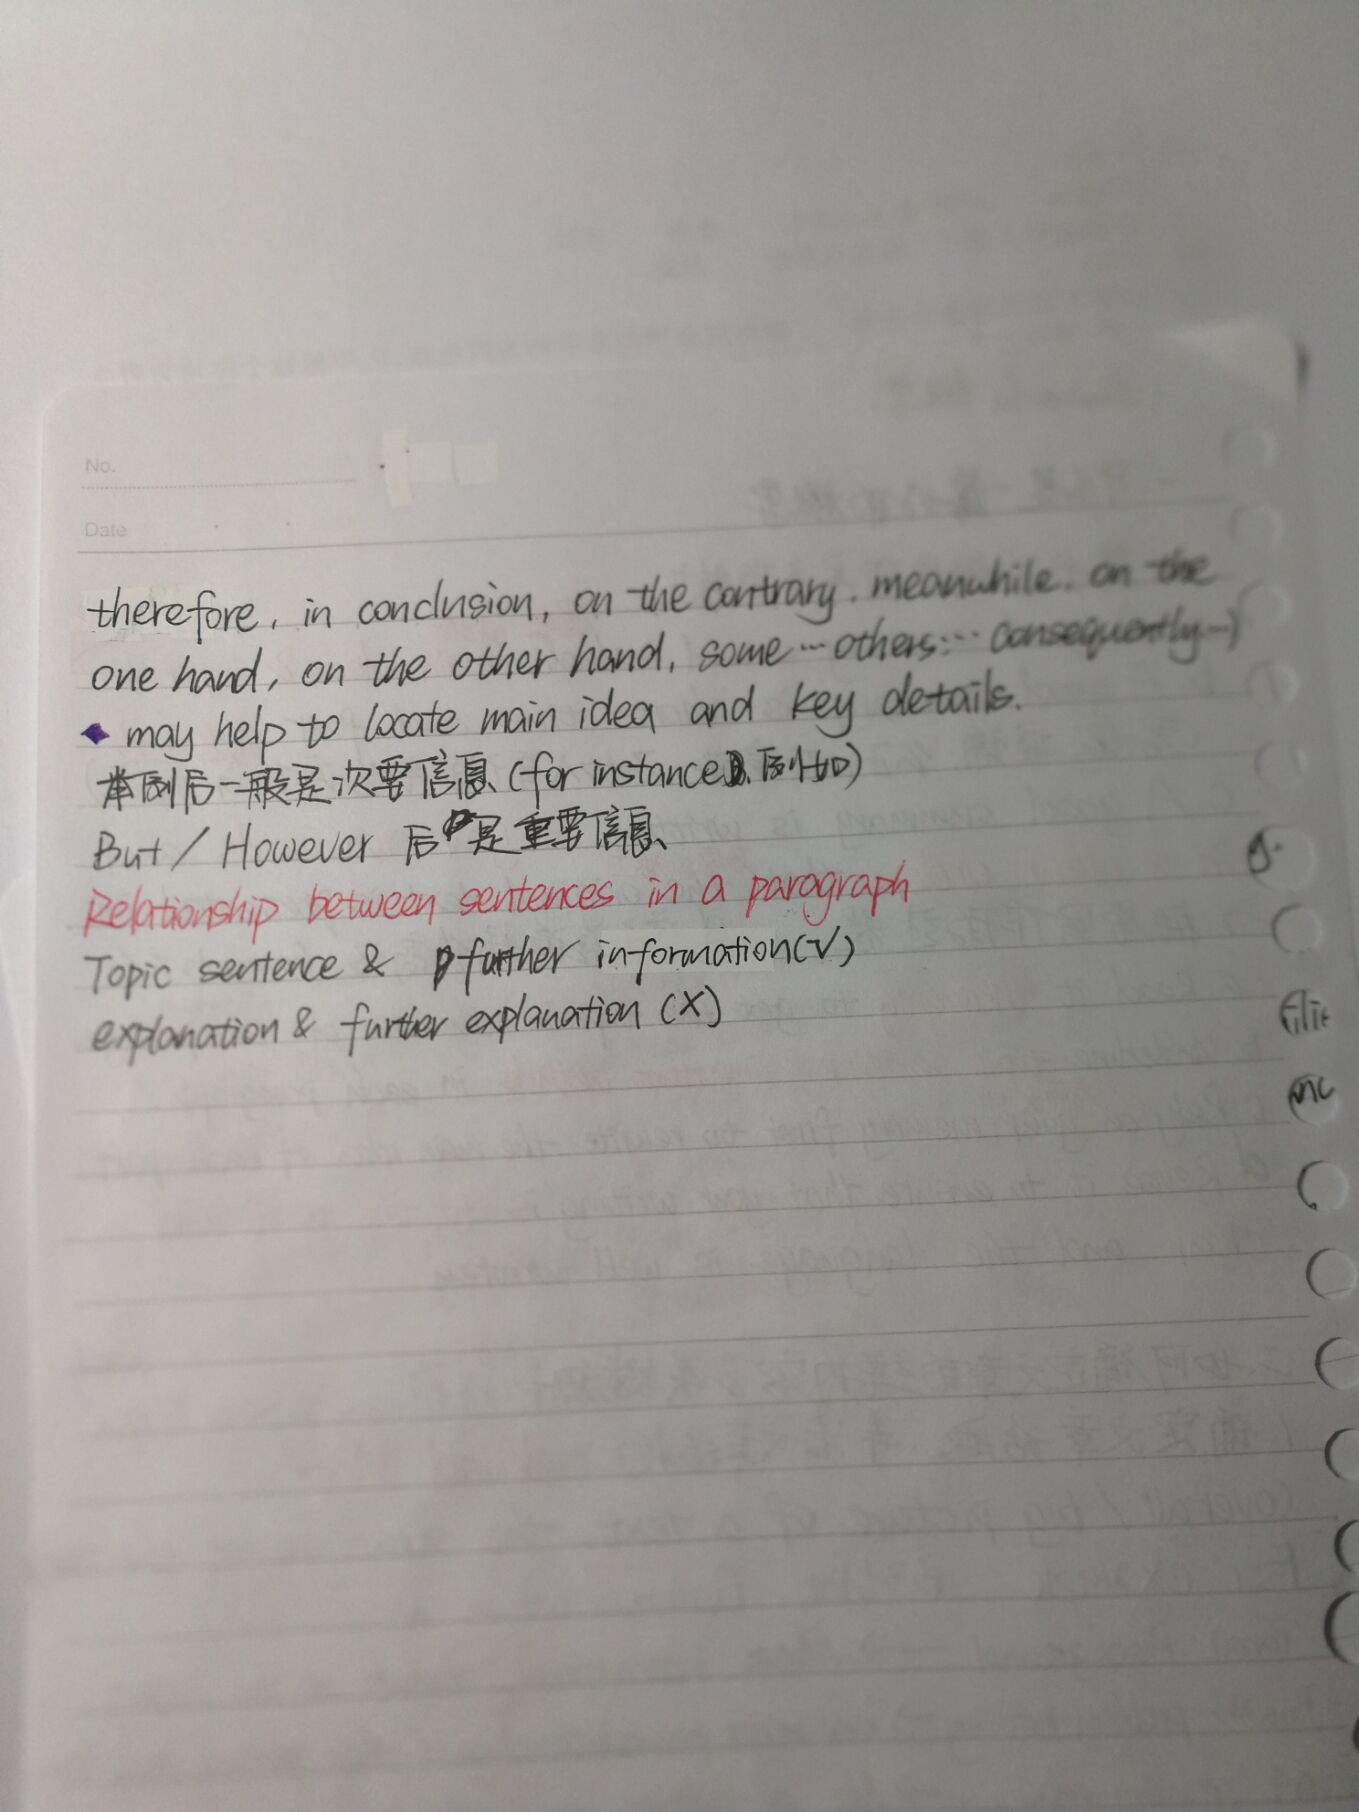 No.
Date
therefore, in conclusion, on the contrary. meanwhile. on the
one hand, on the other hand, some…others:… consequently…)
may help to locate main idea and key details.
举例后一般是次要信息(for instance 后例如)
But / However 后 是重要信息
Relationship between sentences in a paragraph
Topic sentence & further information(√)
explanation & further explanation (X)